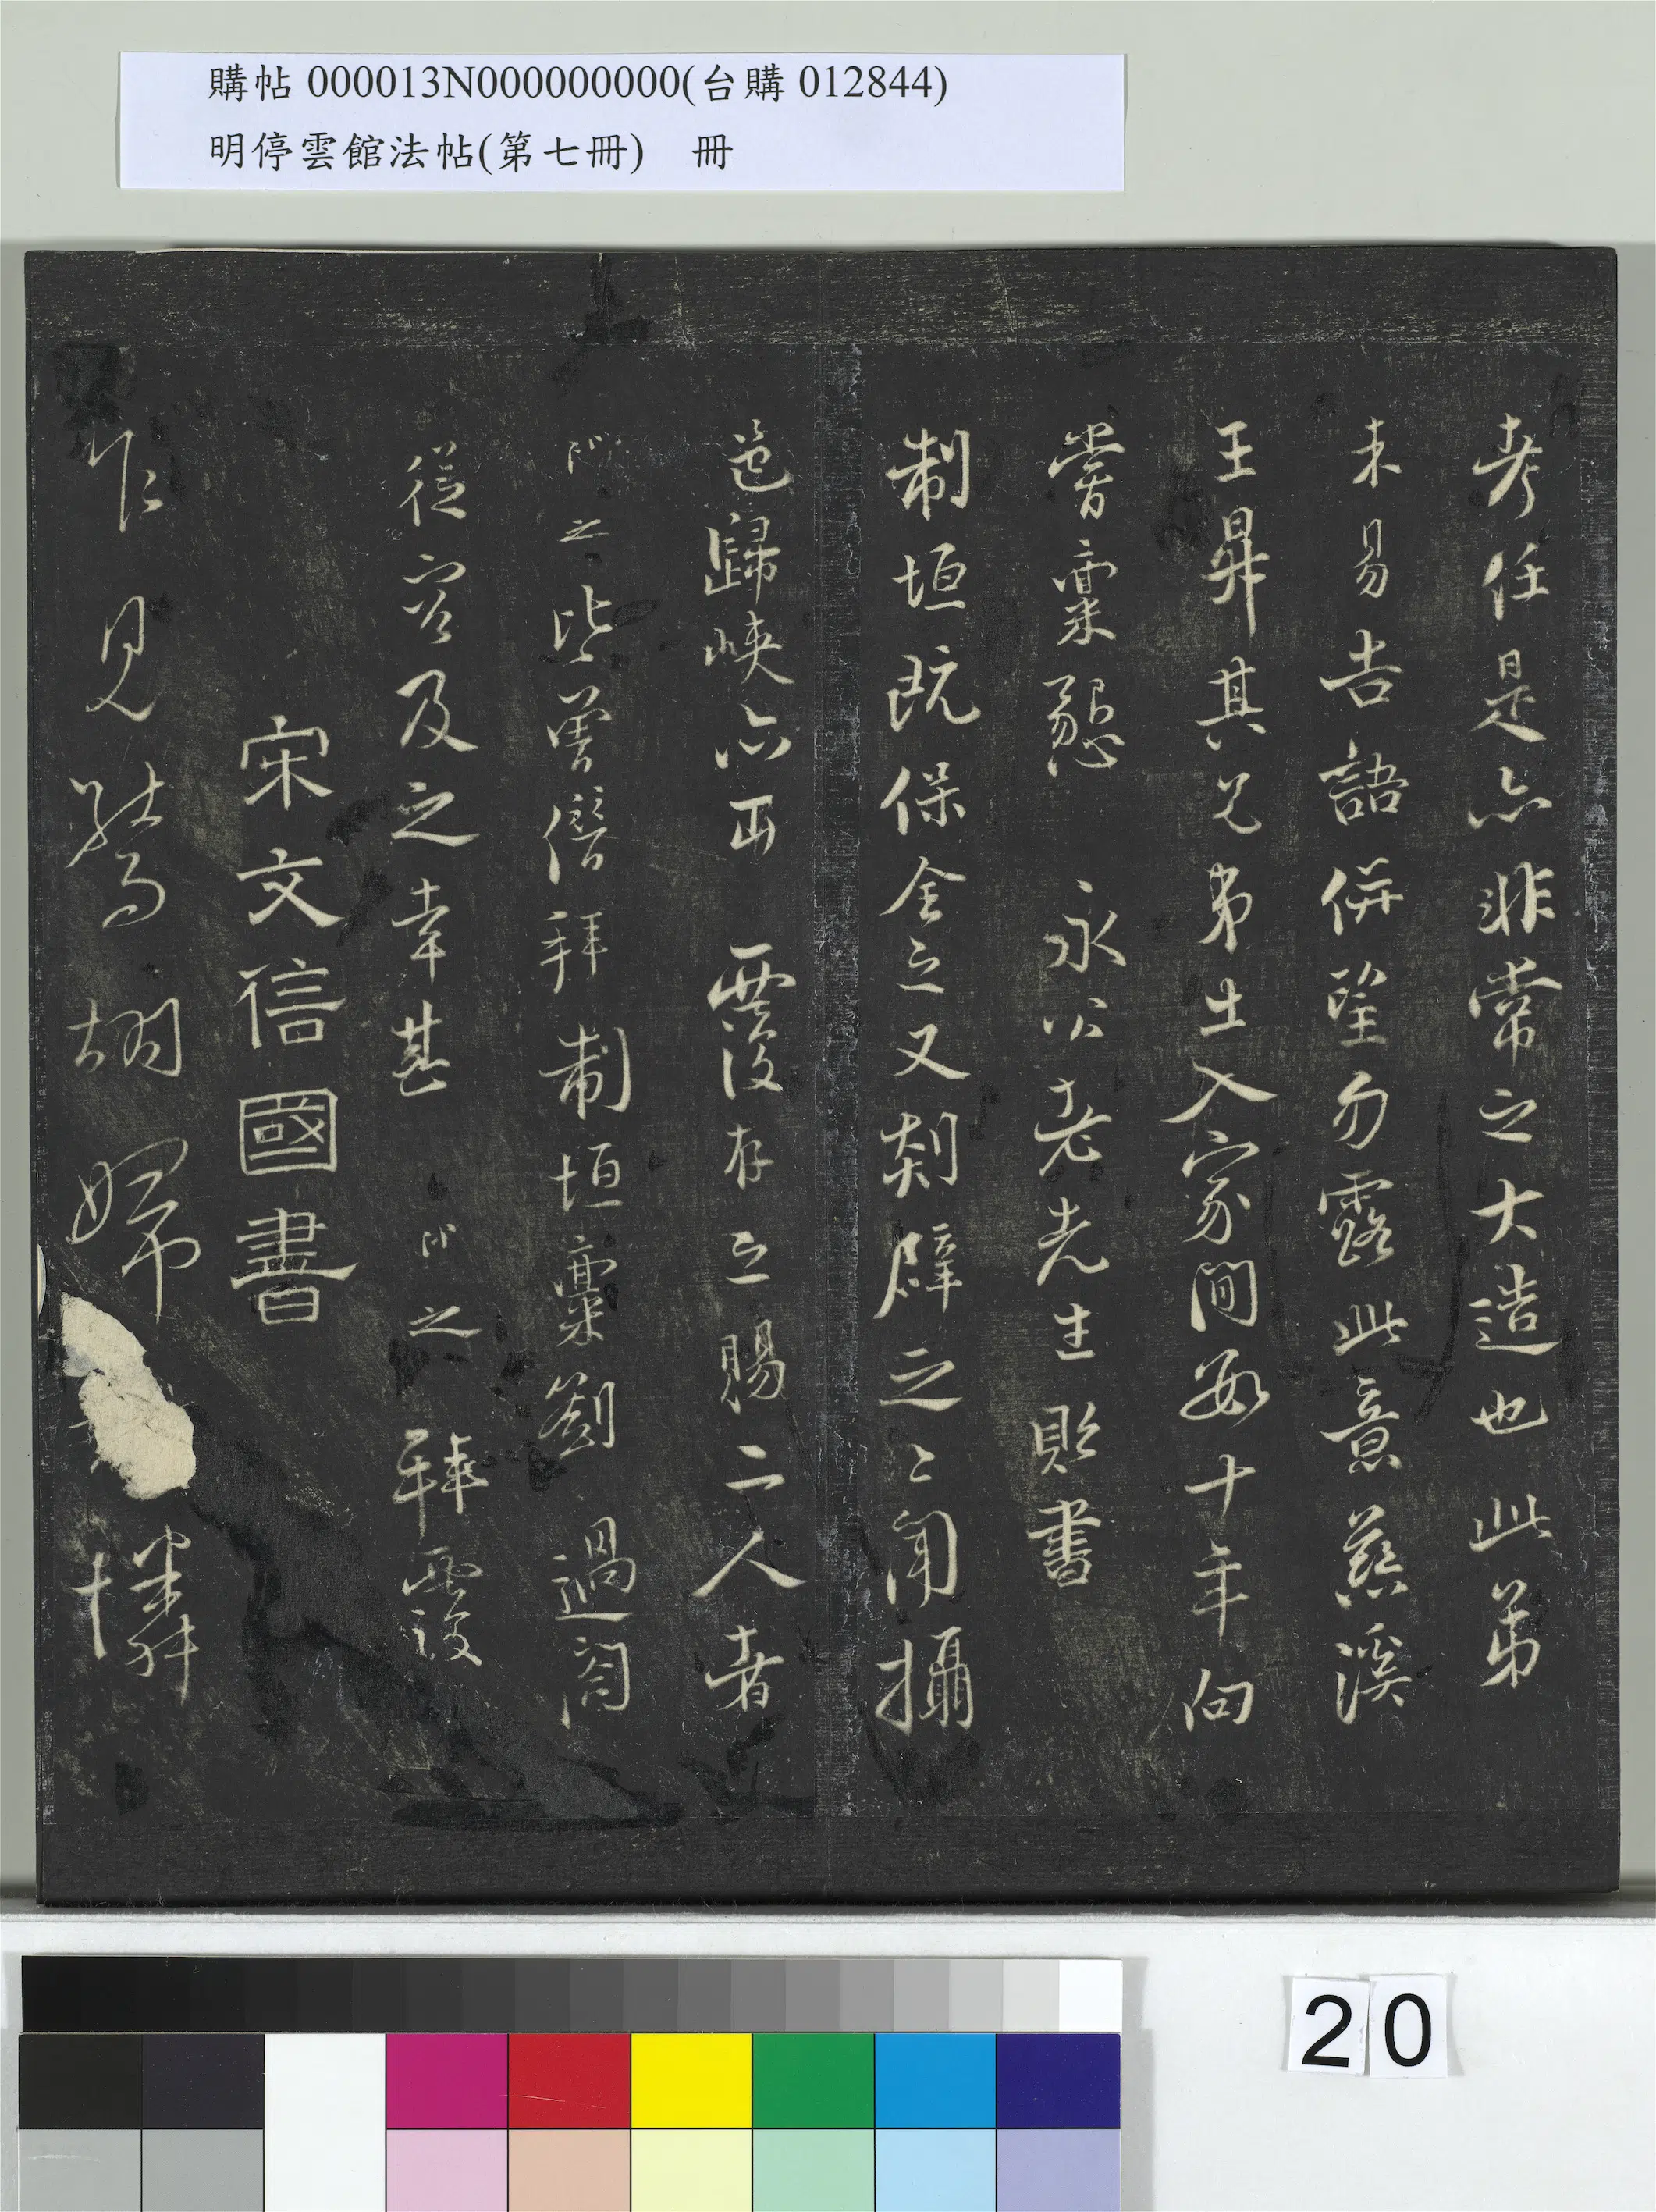 購帖 000013N000000000(台購 012844)
明停雲館法帖(第七冊) 冊
考任是亦非常之大造也此弟
未易告語併望勿露此意慈溪
王昇其兄弟土入家間每十年向
嘗稟懇 永以老先生貽書
制垣既保全之又剡辟之之聞攝
邑歸峽亦再 覆存之賜二人者
之皆嘗僭拜 制垣稟劄 過閤
從容及之幸甚 之 拜覆
宋文信國書
乍見驚胡婦 憐
20